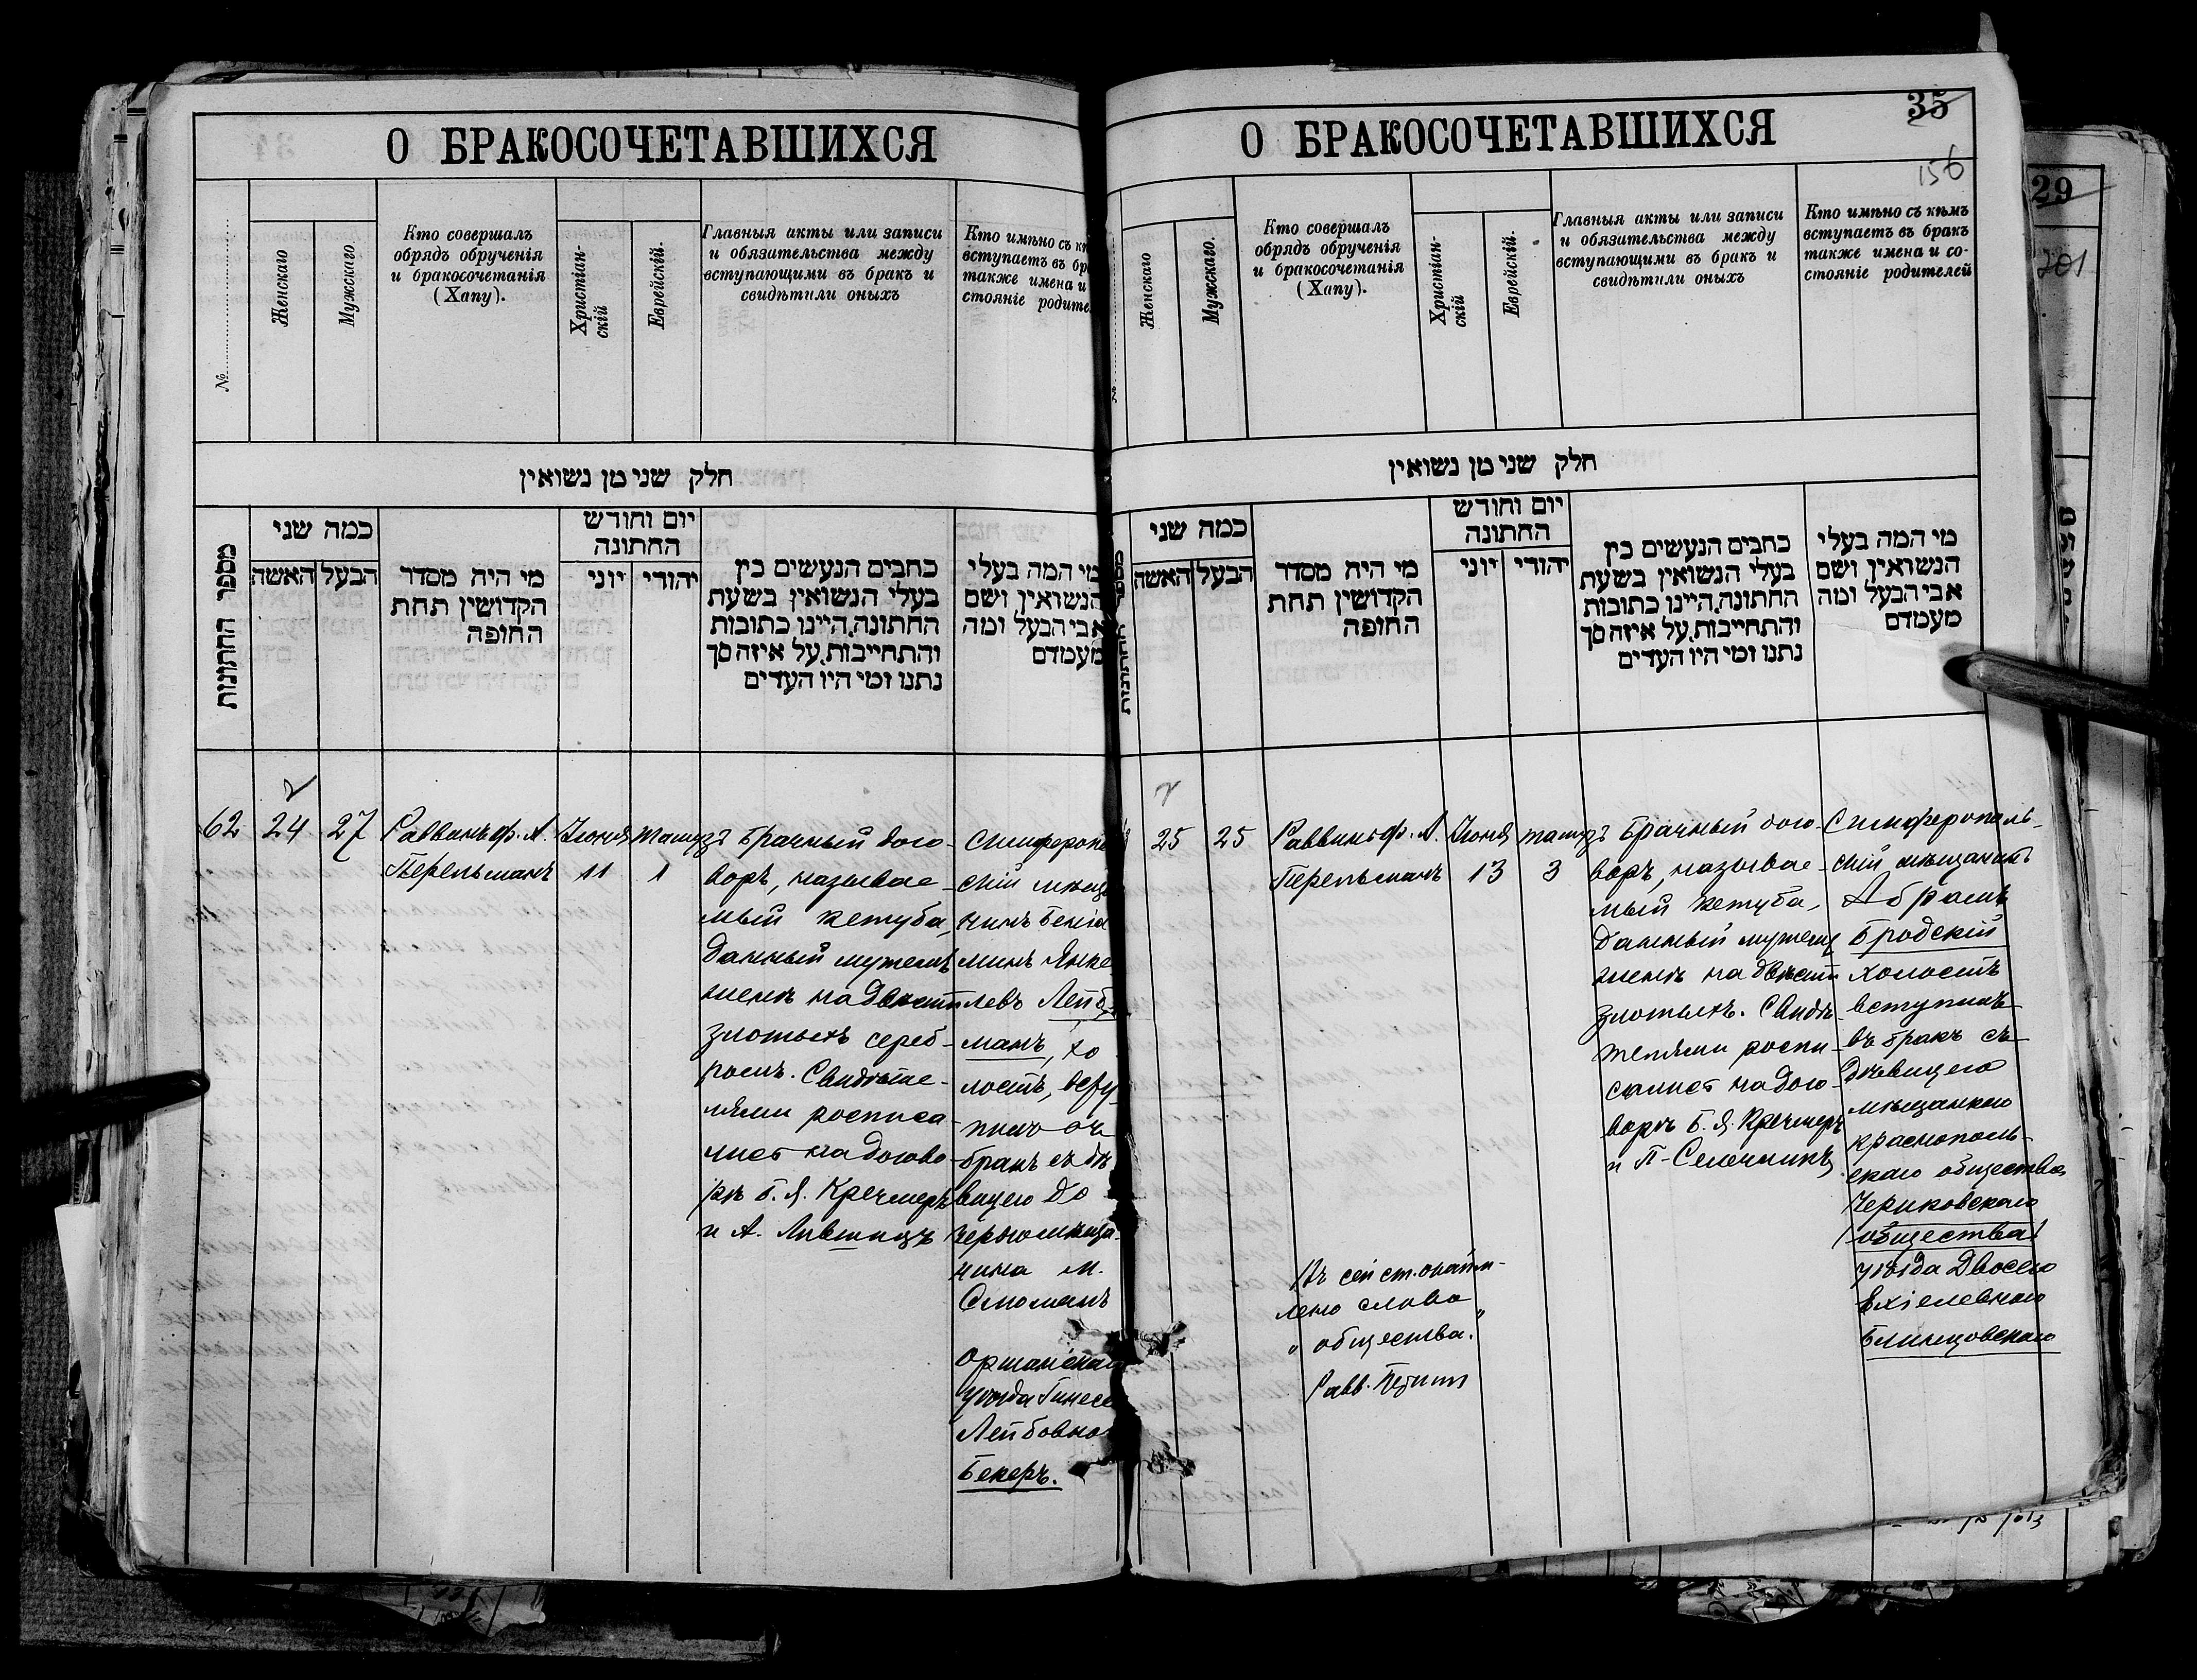 О БРАКОСОЧЕТАВШИХСЯ
№
Женскаго
Мужскаго
Кто совершалъ
обрядъ обрученія
и бракосочетанія
(Хапу).
Христіан-
скій
Еврейскій.
Главныя акты или записи
и обязательства между
вступающими въ бракъ и
свидѣтили оныхъ
Кто имѣно съ
вступаетъ въ
также имена и
стояніе
חלק שני מן נשואין
מספר החתונות
כמה שני
האשה
הבעל
מי היה מסדר
הקדושין תחת
החופה
יום וחודש
החתונה
יוני
יהודי
כתבים הנעשים בין
בעלי הנשואין בשעת
החתונה, היינו כתובות
והתחייבות, על איזה סך
נתנו ומי היו העדים
מי המה בעלי
הנשואין ושם
אבי הבעל ומה
מעמדם
62
24
27
Раввинъ Ф. Л.
Перельманъ
Іюня
11
тамузъ
1
Брачный дого-
воръ, называе-
мый кетуба,
данный мужемъ
женѣ на двѣсти
злотыхъ сереб-
ромъ. Свидѣте-
лями росписа-
лись на догово-
рѣ Б. Я. Кречмеръ
и А. Лившицъ
Симфероп
скій мѣщ
нинъ Беніа
минъ Янке
левъ Лейб
манъ, хо
лостъ,
бракъ съ дѣ
вицею до
черью мѣща-
нина м.
Смоляны
Оршанска
уѣзда Гинесе
Лейбовно
Бекеръ.
О БРАКОСОЧЕТАВШИХСЯ
35
156
Женскаго
Мужскаго.
Кто совершалъ
обрядъ обрученія
и бракосочетанія
(Хапу).
Христіан-
скій
Еврейскій.
Главныя акты или записи
и обязательства между
вступающими въ бракъ и
свидѣтили оныхъ
Кто имѣно съ кѣмъ
вступаетъ въ бракъ
также имена и со-
стояніе родителей
חלק שני מן נשואין
כמה שני
האשה
הבעל
מי היה מסדר
הקדושין תחת
החופה
יום וחודש
החתונה
יוני
יהודי
כתבים הנעשים בין
בעלי הנשואין בשעת
החתונה, היינו כתובות
והתחייבות, על איזה סך
נתנו ומי היו העדים
מי המה בעלי
הנשואין ושם
אבי הבעל ומה
מעמדם
25
25
Раввинъ Ф. Л.
Перельманъ
Іюня
13
тамузъ
3
Брачный дого-
воръ, называе-
мый кетуба,
данный мужемъ
женѣ на двѣсти
злотыхъ. Свидѣ-
телями роспи-
сались на дого-
ворѣ Б. Я. Кречмеръ
и П.
Симферополь-
скій мѣщанинъ
Абрамъ
Бродскій
холостъ
вступилъ
въ бракъ съ
дѣвицею
мѣщанкою
краснополь-
скаго общества
Чериковскаго
(общества)
уѣзда Двосею
Ехіелевною
Блинцовскаго
Въ сей ст.
лено слово
„общества."
Равв.
29
201